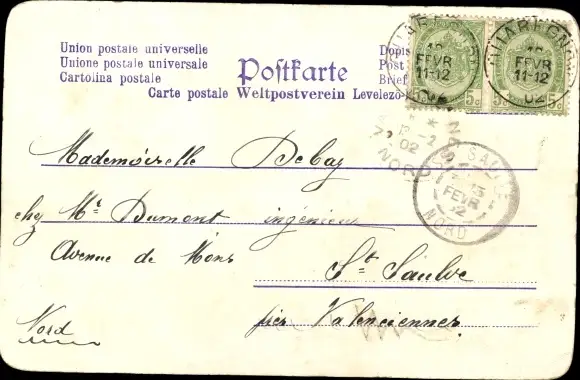 Union postale universelle
Unione postale universale
Cartolina postale
Postkarte
Dopis
Post
Brief
Carte postale Weltpostverein Levelezo-
QUAREGNON
12
FEVR
11-12
02
QUAREGNON
12
FEVR
11-12
02
5c 5c
Mademoiselle Debay
chez Mr Dumont ingénieur
Avenue de Mons
St Saulve
près Valenciennes
Nord
02
NORD
SAULVE
13
FEVR
NORD